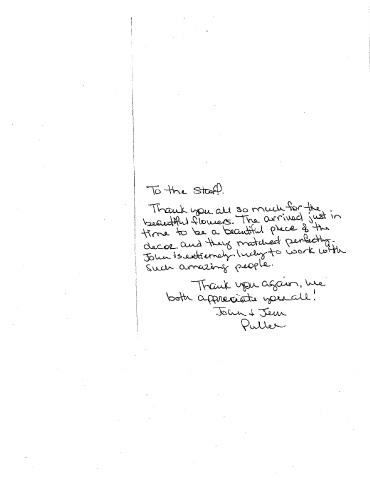 To the Staff.
Thank you all so much for the
beautiful flowers. The arrived just in
time to be a beautiful piece of the
decor and they matched perfectly.
John is extremely lucky to work with
such amazing people.
Thank you again, we
both appreciate you all!
John & Jen
Puller